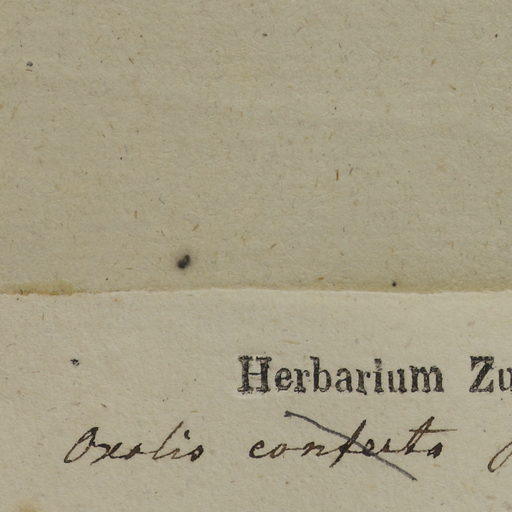 Herbarium Zu
Oxalis conferta